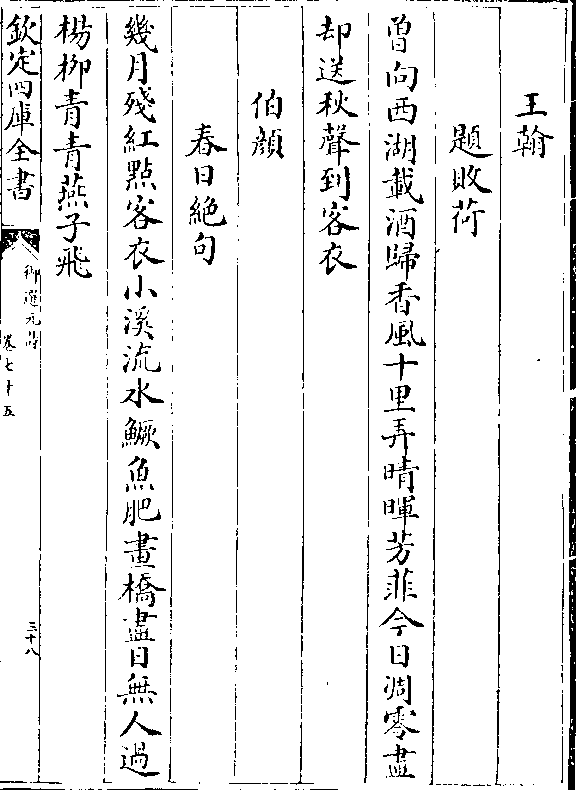 王翰
題敗荷
曾向西湖載酒歸香風十里弄晴暉芳菲今日凋零盡
却送秋聲到客衣
伯顔
春日絶句
幾月殘紅點客衣小溪流水鱖魚肥畫橋盡日無人過
楊柳青青燕子飛
欽定四庫全書
御選元詩
卷七十五
三十八